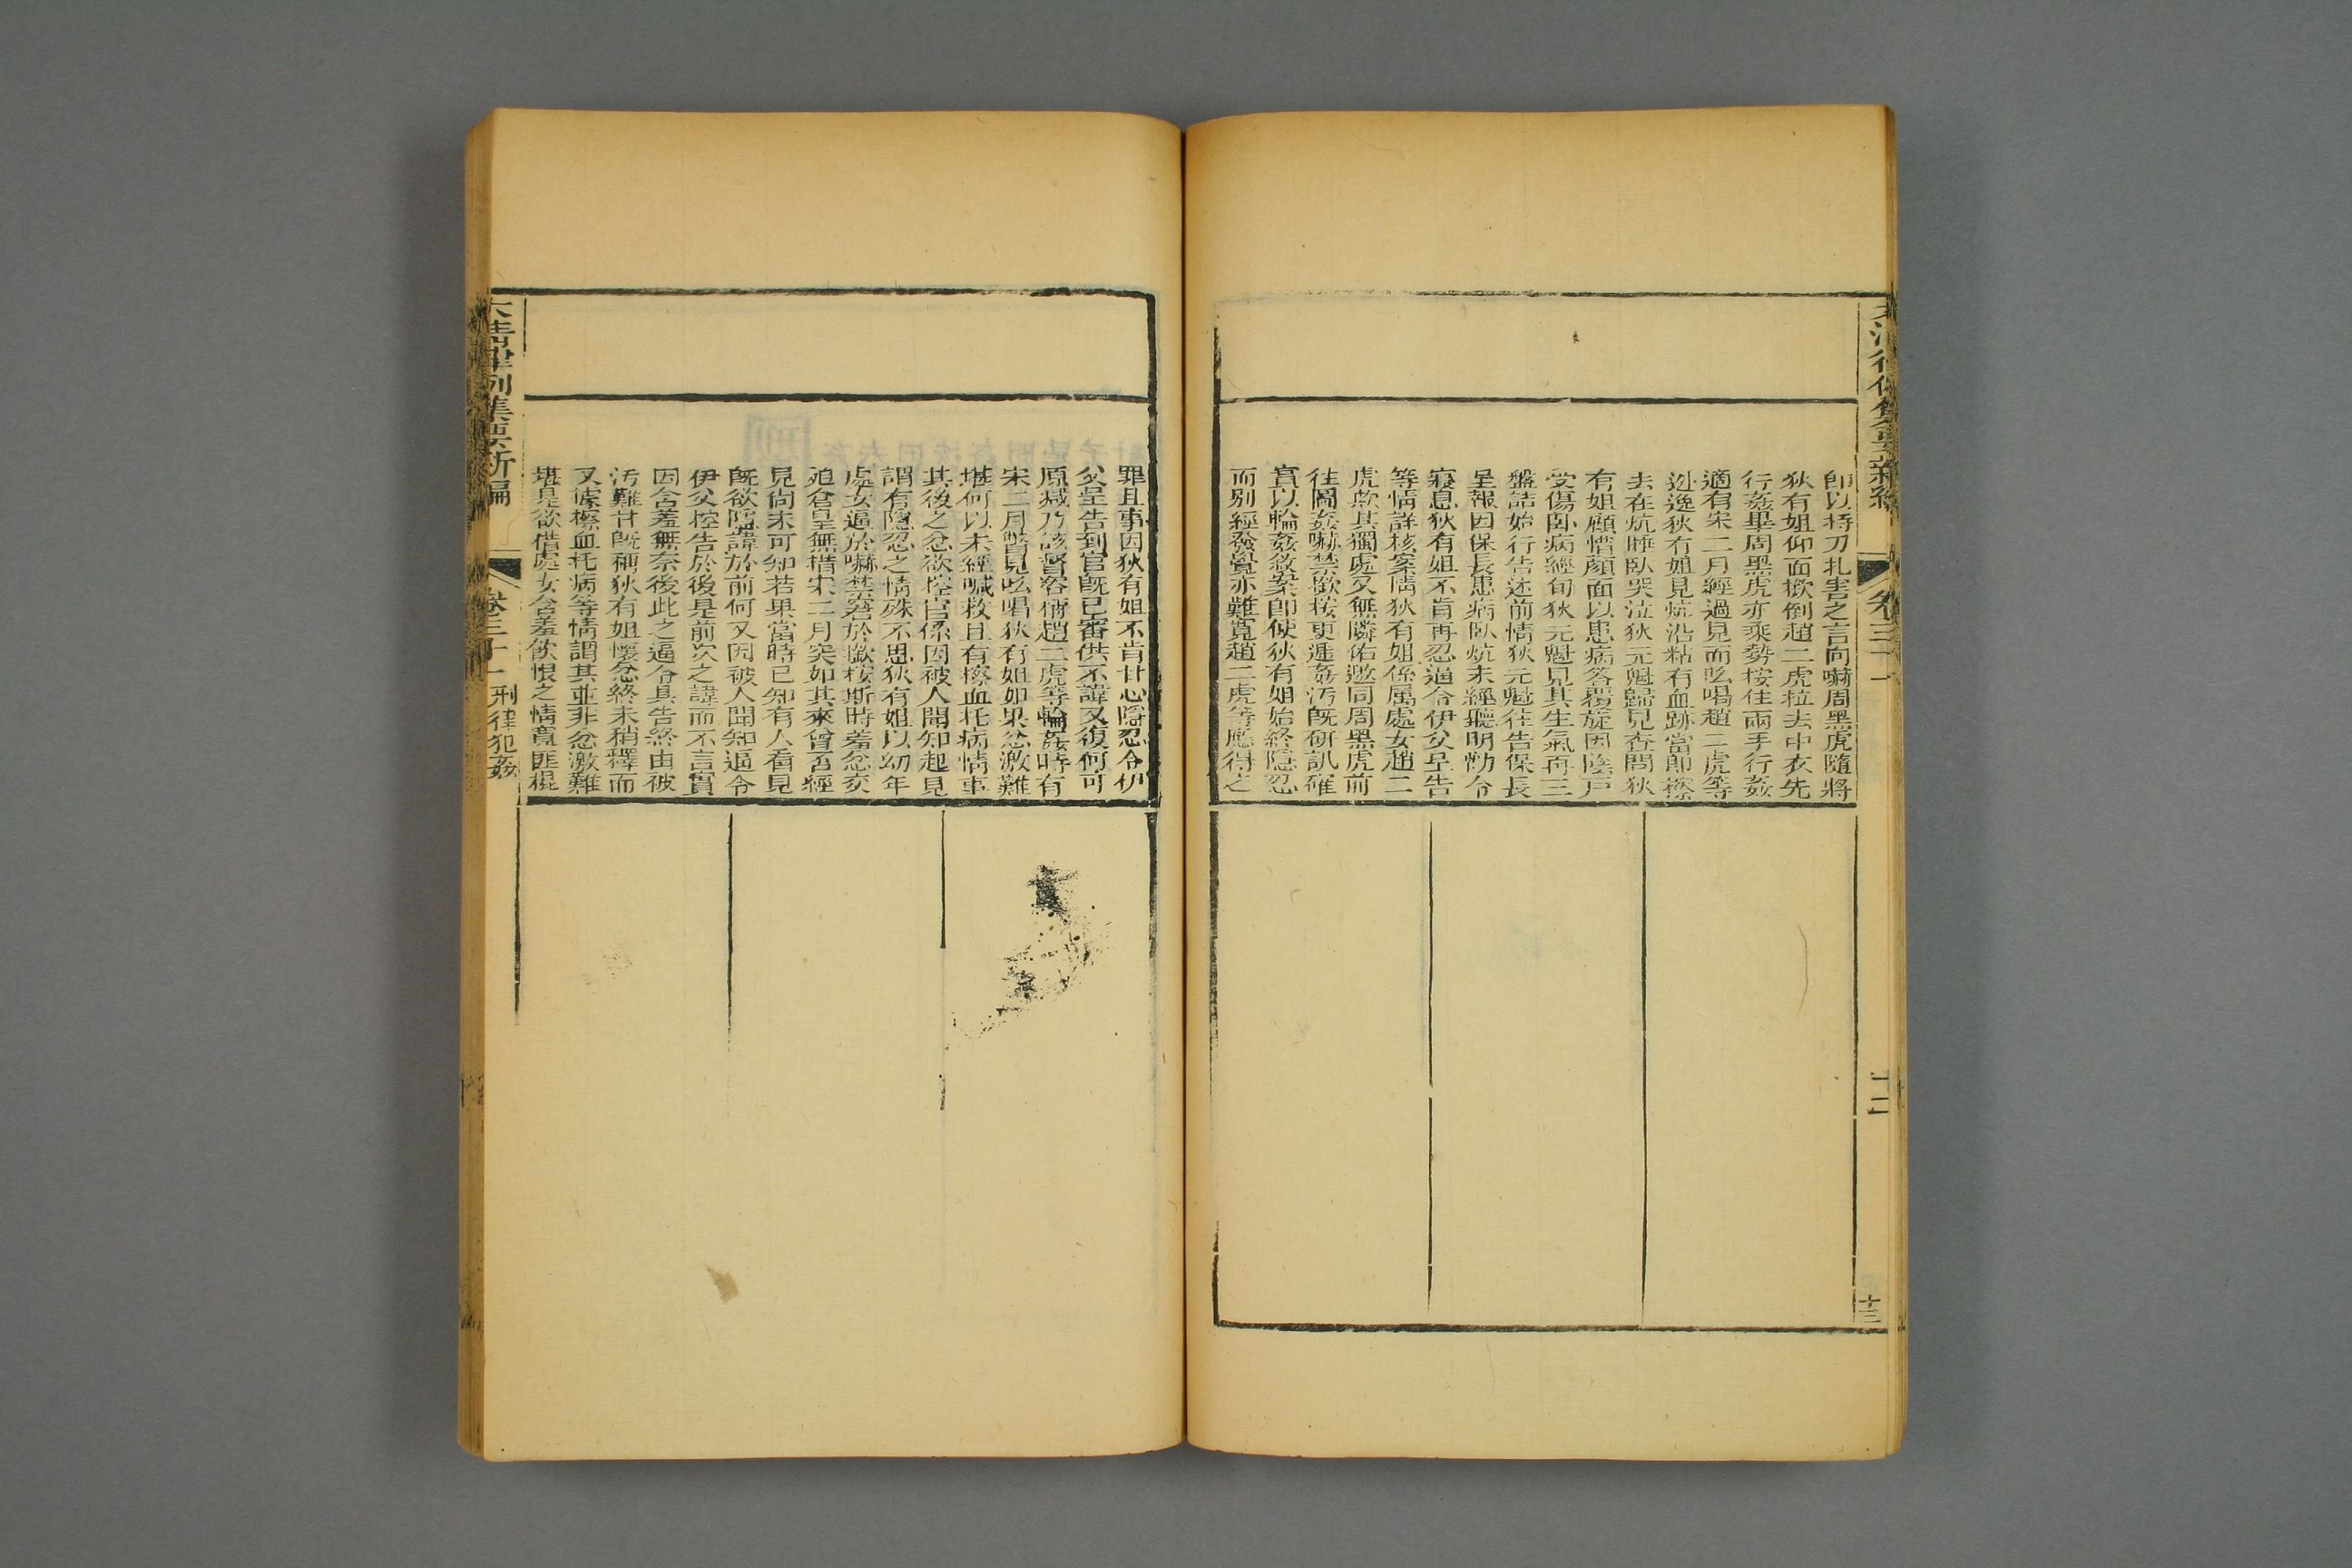 大清律例集要新編
卷三十一
十二
十三
即以持刀扎害之言向嚇周黑虎隨將
狄有姐仰面揿倒趙二虎拉去中衣先
行姦畢周黑虎亦乘勢按住兩手行姦
適有宋二月經過見而吆喝趙二虎等
逃逸狄有姐見炕沿粘有血跡當即擦
去在炕睡臥哭泣狄元魁歸見查問狄
有姐顧惜顏面以患病答覆旋因陰戶
受傷臥病經旬狄元魁見其生氣再三
盤詰始行告述前情狄元魁往告保長
呈報因保長患病臥炕未經聽明勸令
寢息狄有姐不肯再忍逼令伊父呈告
等情詳核案情狄有姐係屬處女趙二
虎欺其獨處又無隣佑邀同周黑虎前
往圖姦嚇禁揿按更遞姦汚既研訊確
實以輪姦敘案即使狄有姐始終隱忍
而別經發覺亦難寬趙二虎等應得之
罪且事因狄有姐不肯甘心隱忍令伊
父呈告到官既已審供不諱又復何可
原減乃該督咨稱趙二虎等輪姦時有
宋二月瞥見吆喝狄有姐如果忿激難
堪何以未經喊救且有擦血托病情事
其後之忿欲控官係因被人聞知起見
謂有隱忍之情殊不思狄有姐以幼年
處女逼於嚇禁窘於揿按斯時羞忿交
迫倉皇無措宋二月突如其來曾否經
見尚未可知若果當時已知有人看見
既欲隱諱於前何又因被人聞知逼令
伊父控告於後是前次之諱而不言實
因含羞無奈後此之逼令具告終由被
汚難甘既稱狄有姐懷忿終未稍釋而
又據擦血托病等情謂其並非忿激難
堪是欲借處女含羞飲恨之情寬匪棍
大清律例集要新編
卷三十一
刑律犯姦